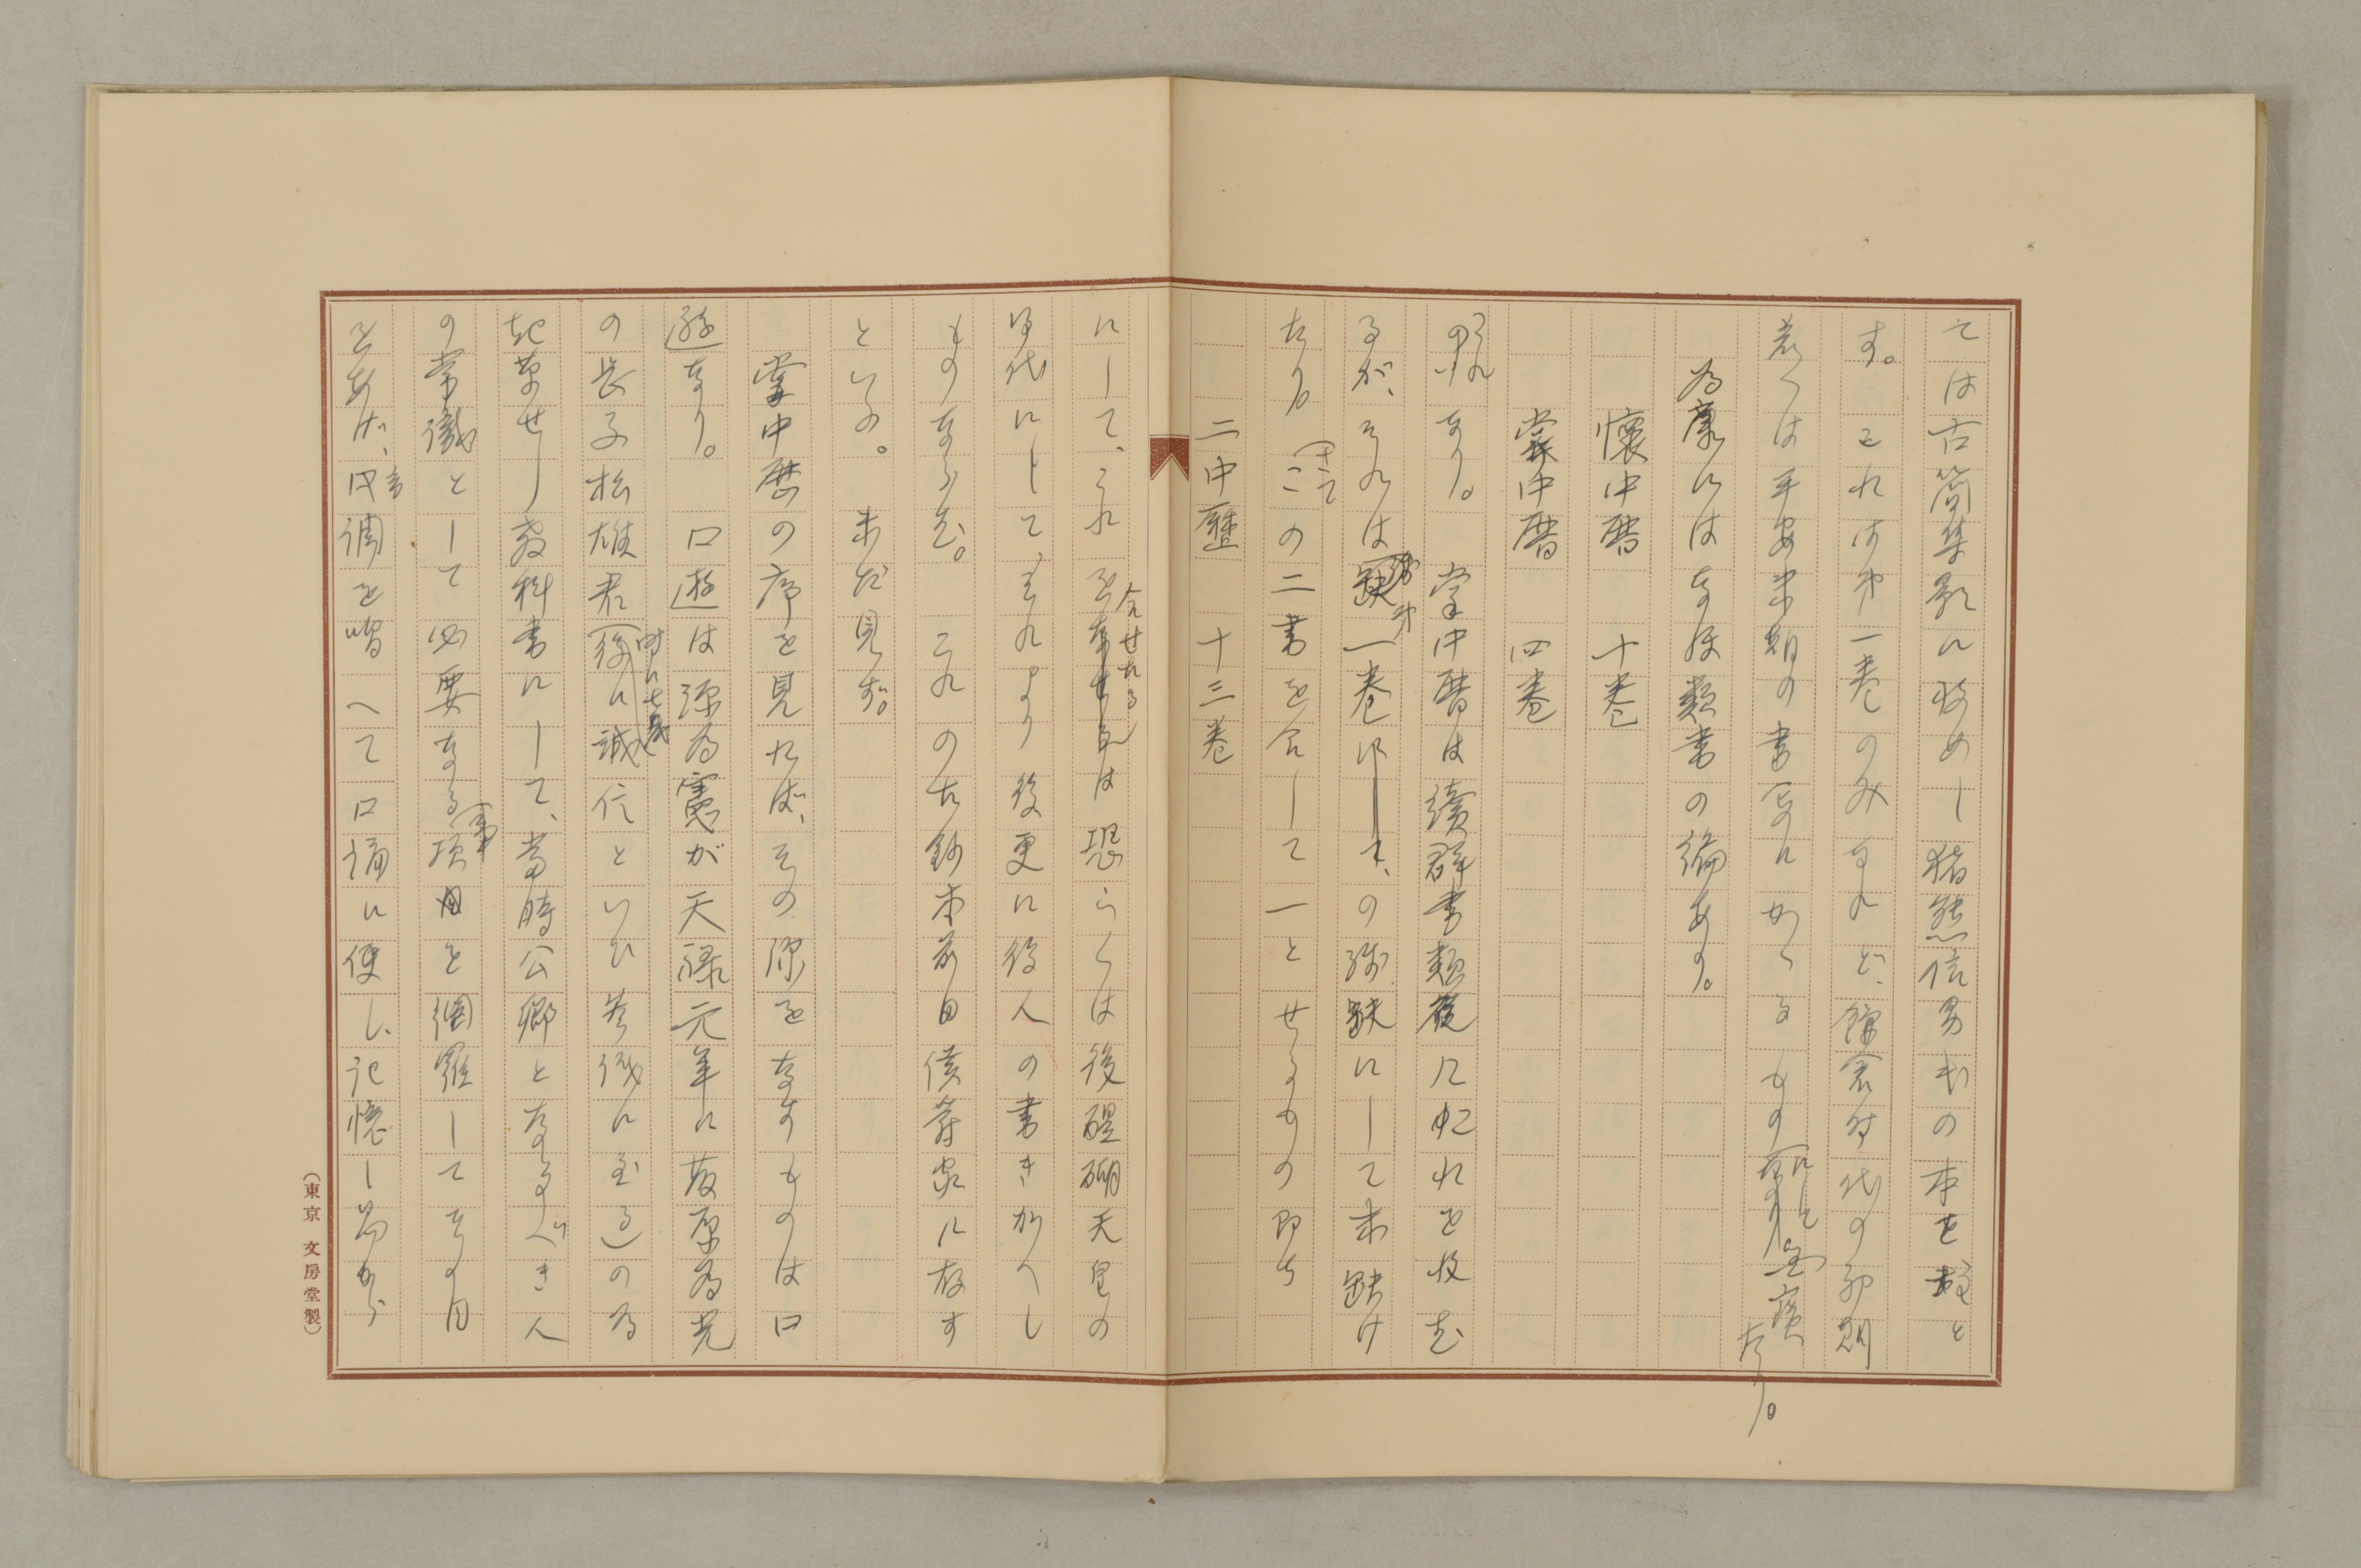 ては古簡集影に收めし猪熊信男氏の本を最と
す。これは第一巻のみなれど、鎌倉時代の初期
若くは平安末期の書写にかゝるものにして無窮たり。
為康にはなほ類書の編あり。
懐中暦 十巻
掌中暦 四巻
のなり。掌中暦は續群書類從にこれを收む
るが、それは第一巻の残缺にして末缺け
たり。さてこの二書を合して一とせるもの即ち
二中歴 十三巻
にして、これを合せたるは恐らくは後醍醐天皇の
時代にして、それより後更に後人の書きかへし
ものならむ。これの古鈔本前田侯爵家に存す
といふ。未だ見ず。
掌中歴の序を見れば、その源をなすものは口
遊なり。口遊は源為憲が天禄元年に藤原為光
の長子松雄君（時に七歳後に誠信といひ参議に至る）の為
起草せし教科書にして、當時公卿となるべき人
の常識として必要なる事項を網羅してその目
をあげ、音調を喝へて口誦に便し、記憶し易から
（東京 文房堂製）